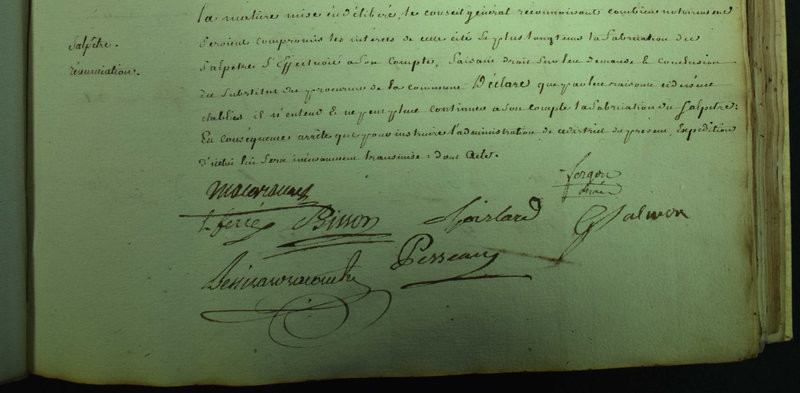 la matière mise en délibéré, le conseil général reconnoissant combien notoirement
Salpêtre.
seroient compromis les intérêts de cette cité si plus longtems la fabrication du
rénunciation.
Salpêtre s'effectuoit a son compte, faisant droit sur les demande & conclusion
du substitut du procureur de la commune Déclare que par les raisons cidessus
établies il n'entend & ne peut plus continuer a son compte la fabrication du Salpêtre;
En conséquence arrête que pour instruire l'administration de ce district du présent, Expédition
d'icelui lui sera incessamment transmise; dont Acte.
forgon
ferré Bisson
G Salmon
Perseau